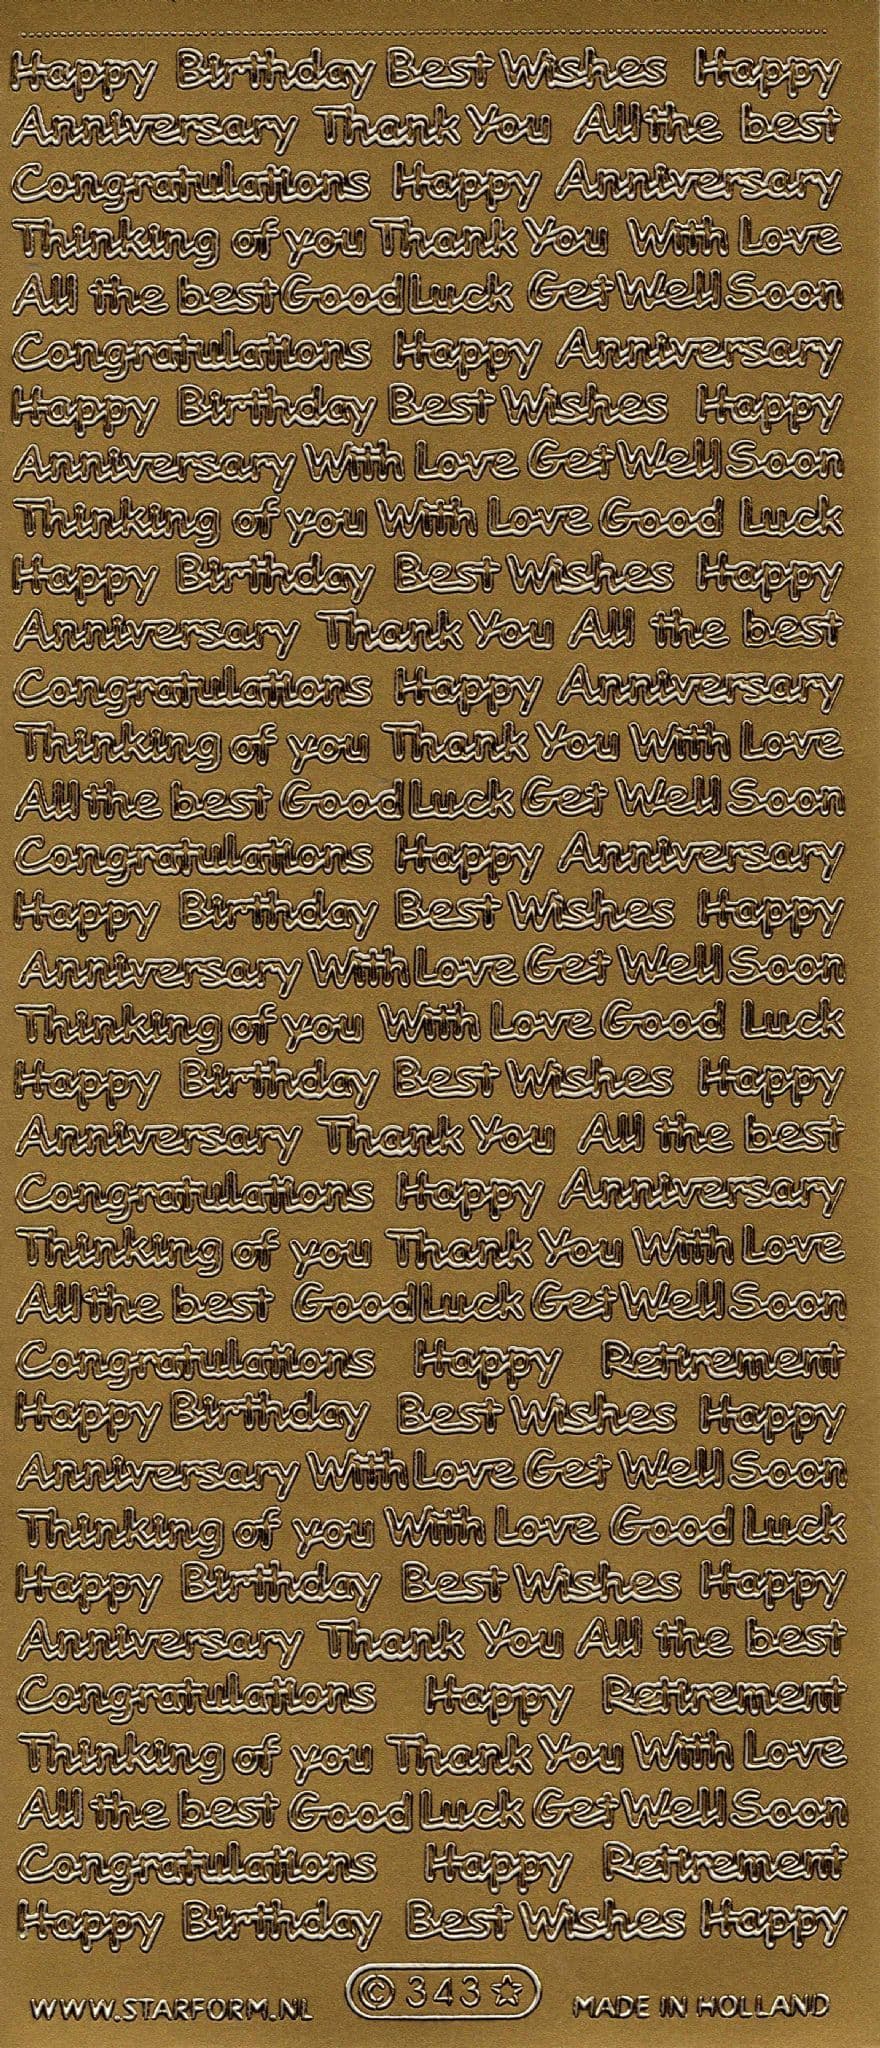 Happy Birthday Best Wishes Happy
Anniversary Thank You All the best
Congratulations Happy Anniversary
Thinking of you Thank You With Love
All the best Good Luck Get Well Soon
Congratulations Happy Anniversary
Happy Birthday Best Wishes Happy
Anniversary With Love Get Well Soon
Thinking of you With Love Good Luck
Happy Birthday Best Wishes Happy
Anniversary Thank You All the best
Congratulations Happy Anniversary
Thinking of you Thank You With Love
All the best Good Luck Get Well Soon
Congratulations Happy Anniversary
Happy Birthday Best Wishes Happy
Anniversary With Love Get Well Soon
Thinking of you With Love Good Luck
Happy Birthday Best Wishes Happy
Anniversary Thank You All the best
Congratulations Happy Anniversary
Thinking of you Thank You With Love
All the best Good Luck Get Well Soon
Congratulations Happy Retirement
Happy Birthday Best Wishes Happy
Anniversary With Love Get Well Soon
Thinking of you With Love Good Luck
Happy Birthday Best Wishes Happy
Anniversary Thank You All the best
Congratulations Happy Retirement
Thinking of you Thank You With Love
All the best Good Luck Get Well Soon
Congratulations Happy Retirement
Happy Birthday Best Wishes Happy
WWW.STARFORM.NL © 343 ☆ MADE IN HOLLAND